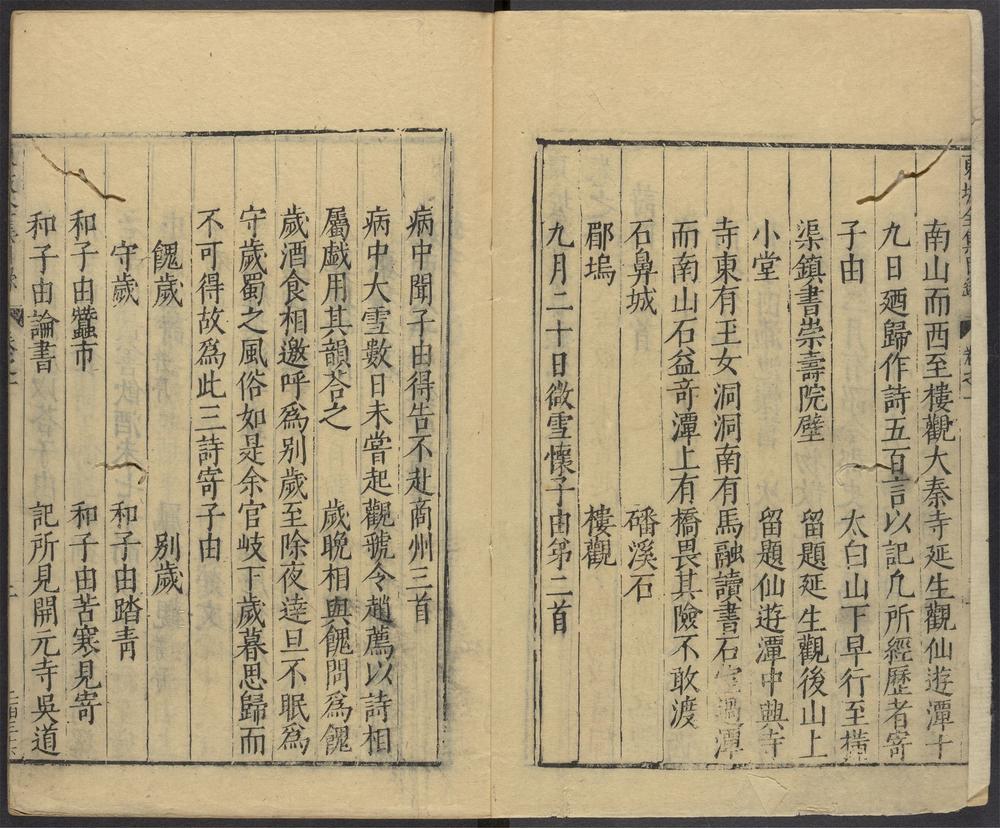 南山而西至樓觀大秦寺延生觀仙遊潭十
九日廼歸作詩五百言以記凢所經歷者寄
子由　太白山下早行至橫
渠鎮書崇壽院壁　留題延生觀後山上
小堂　留題仙遊潭中興寺
寺東有玉女洞洞南有馬融讀書石室過潭
而南山石益竒潭上有橋畏其險不敢渡
石鼻城　磻溪石
郿塢　樓觀
九月二十日微雪懷子由第二首
病中聞子由得告不赴商州三首
病中大雪數日未嘗起觀虢令趙薦以詩相
屬戲用其韻荅之　歲晩相與餽問爲餽
歲酒食相邀呼爲别歲至除夜逹旦不眠爲
守歲蜀之風俗如是余官岐下歲暮思歸而
不可得故爲此三詩寄子由
餽歲　别歲
守歲　和子由踏靑
和子由蠶市　和子由苦寒見寄
和子由論書　記所見開元寺吳道